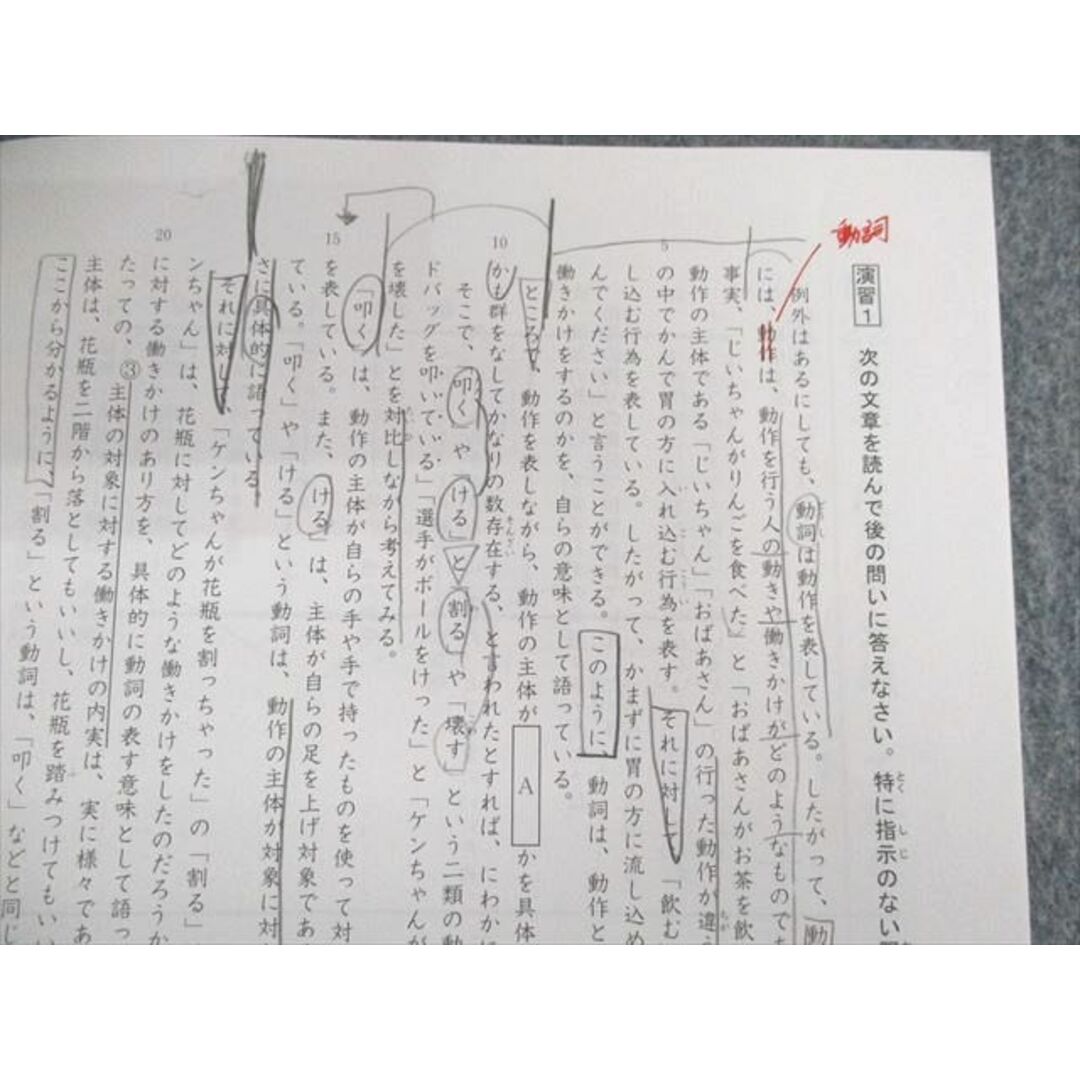 動詞
演習1 次の文章を読んで後の問いに答えなさい。特に指示のない
例外はあるにしても、動詞は動作を表している。したがって、動
には、動作は、動作を行う人の動きや働きかけがどのようなもので
事実、「じいちゃんがりんごを食べた」と「おばあさんがお茶を飲
動作の主体である「じいちゃん」「おばあさん」の行った動作が違
5
の中でかんで胃の方に入れ込む行為を表す。それに対して「飲む
し込む行為を表している。したがって、かまずに胃の方に流し込め
んでください」と言うことができる。このように、動詞は、動作と
働きかけをするのかを、自らの意味として語っている。
ところで、動作を表しながら、動作の主体が A かを具体
10
かも群をなしてかなりの数存在する、と言われたとすれば、にわかに
そこで、「叩く」や「ける」と「割る」や「壊す」という二類の動
ドバッグを叩いている」「選手がボールをけった」と「ケンちゃんが
を壊した」とを対比しながら考えてみる。
「叩く」は、動作の主体が自らの手や手で持ったものを使って対
15
を表している。また、「ける」は、主体が自らの足を上げ対象であ
ている。「叩く」や「ける」という動詞は、動作の主体が対象に対
さに具体的に語っている。
それに対して、「ケンちゃんが花瓶を割っちゃった」の「割る」
ンちゃん」は、花瓶に対してどのような働きかけをしたのだろうか
20
に対する働きかけのあり方を、具体的に動詞の表す意味として語っ
たっての、③主体の対象に対する働きかけの内実は、実に様々であ
主体は、花瓶を二階から落としてもいいし、花瓶を踏みつけてもい
ここから分かるように、「割る」という動詞は、「叩く」などと同じ